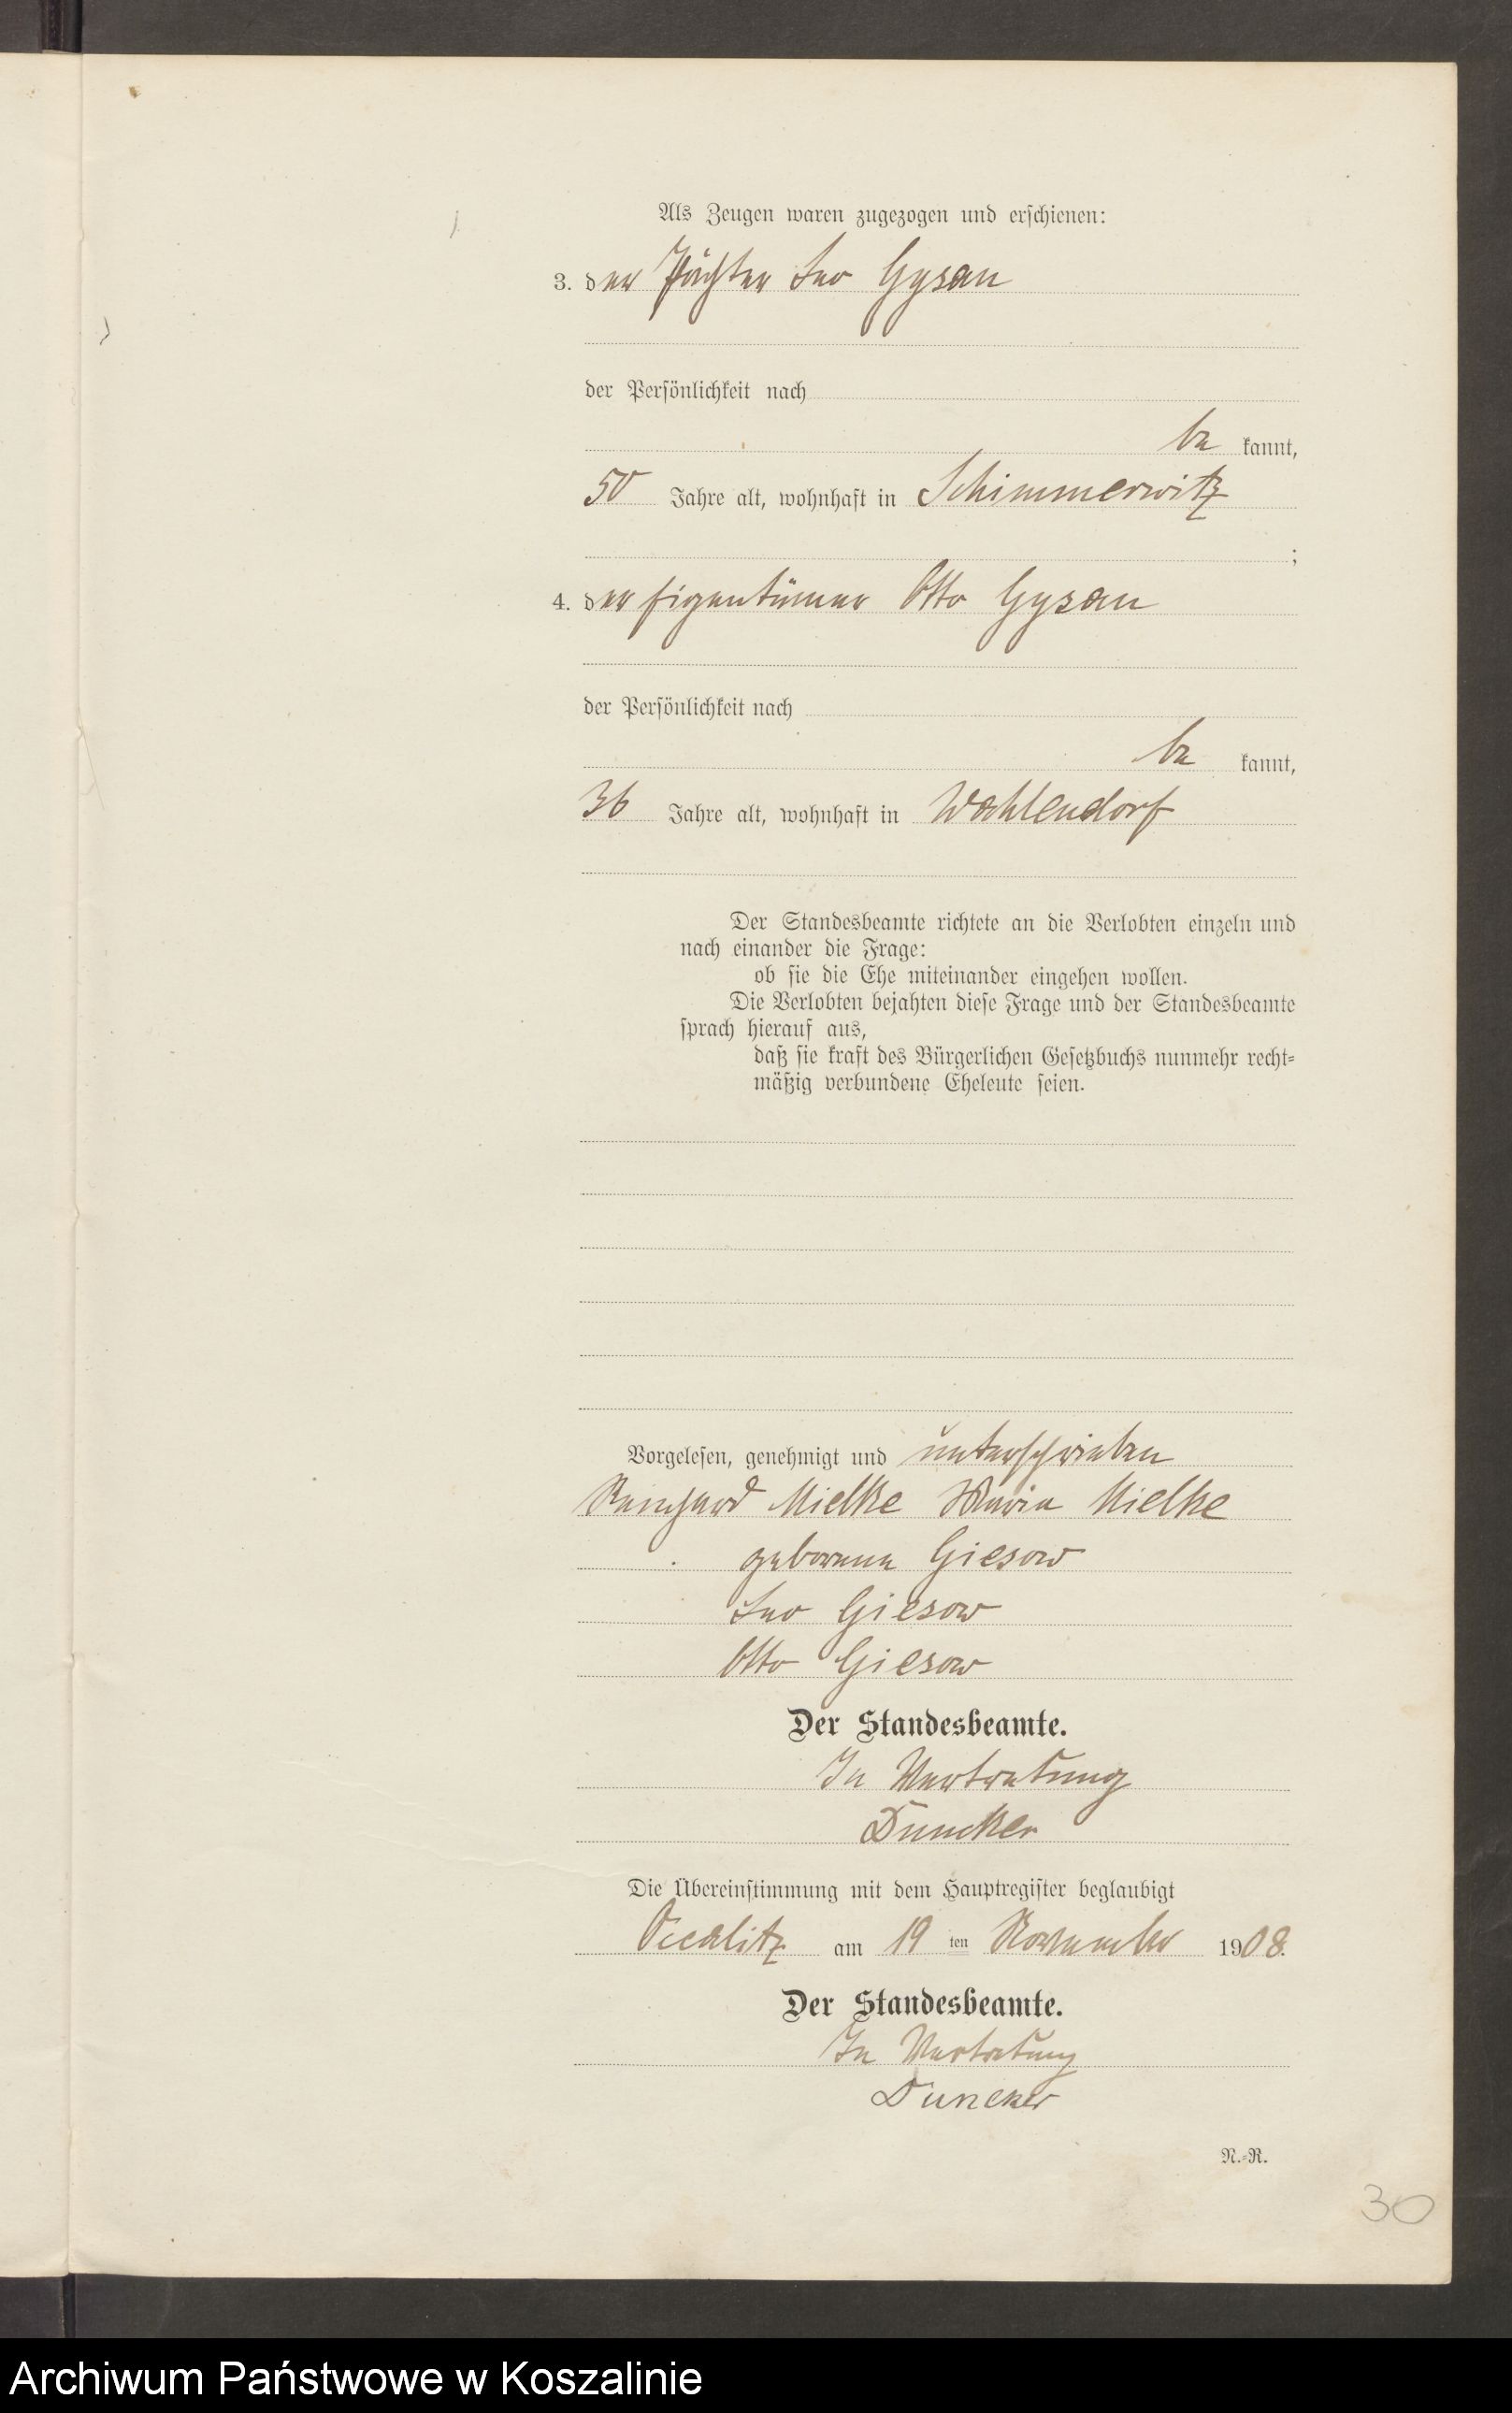 Als Zeugen waren zugezogen und erschienen:
3. der Pächter Leo Gysan
der Persönlichkeit nach
be kannt,
50 Jahre alt, wohnhaft in Schimmerwitz
;
4. der Eigentümer Otto Gysan
der Persönlichkeit nach
be kannt,
36 Jahre alt, wohnhaft in Wahlendorf
Der Standesbeamte richtete an die Verlobten einzeln und
nach einander die Frage:
ob sie die Ehe miteinander eingehen wollen.
Die Verlobten bejahten diese Frage und der Standesbeamte
sprach hierauf aus,
daß sie kraft des Bürgerlichen Gesetzbuchs nunmehr recht=
mäßig verbundene Eheleute seien.
Vorgelesen, genehmigt und unterschrieben
Reinhard Mielke Maria Mielke
geborene Giesow
Leo Giesow
Otto Giesow
Der Standesbeamte.
In Vertretung
Duncker
Die Übereinstimmung mit dem Hauptregister beglaubigt
Occalitz am 19 ten November 1908.
Der Standesbeamte.
In Vertretung
Duncker
N.=R.
30
Archiwum Państwowe w Koszalinie